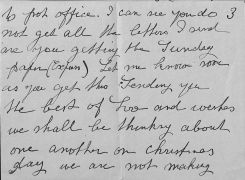 to post office. I can see you do 3
not get all the letters I send
are you getting the Sunday
paper (Express) Let me know soon
as you get this Sending you
the best of love and wishes
we shall be thinking about
one another on Christmas
day we are not making